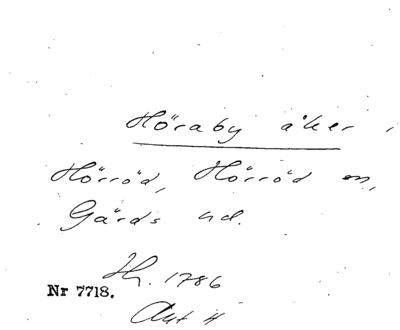 Höraby åker,
Hörröd, Hörröd sn,
Gärds hd.
Hy. 1786
Nr 7718.
Akt 4